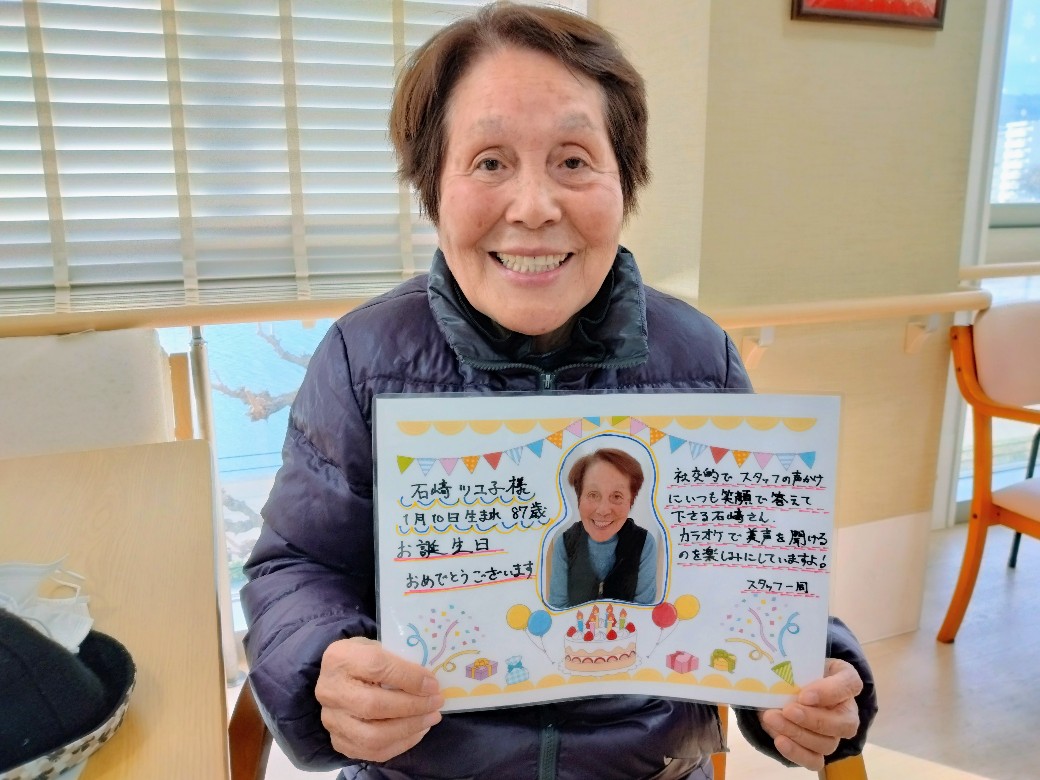 石﨑ツユ子様
1月10日生まれ 87歳
お誕生日
おめでとうございます
社交的でスタッフの声かけ
にいつも笑顔で答えて
下さる石崎さん。
カラオケで美声を聞ける
のを楽しみにしていますよ!
スタッフ一同